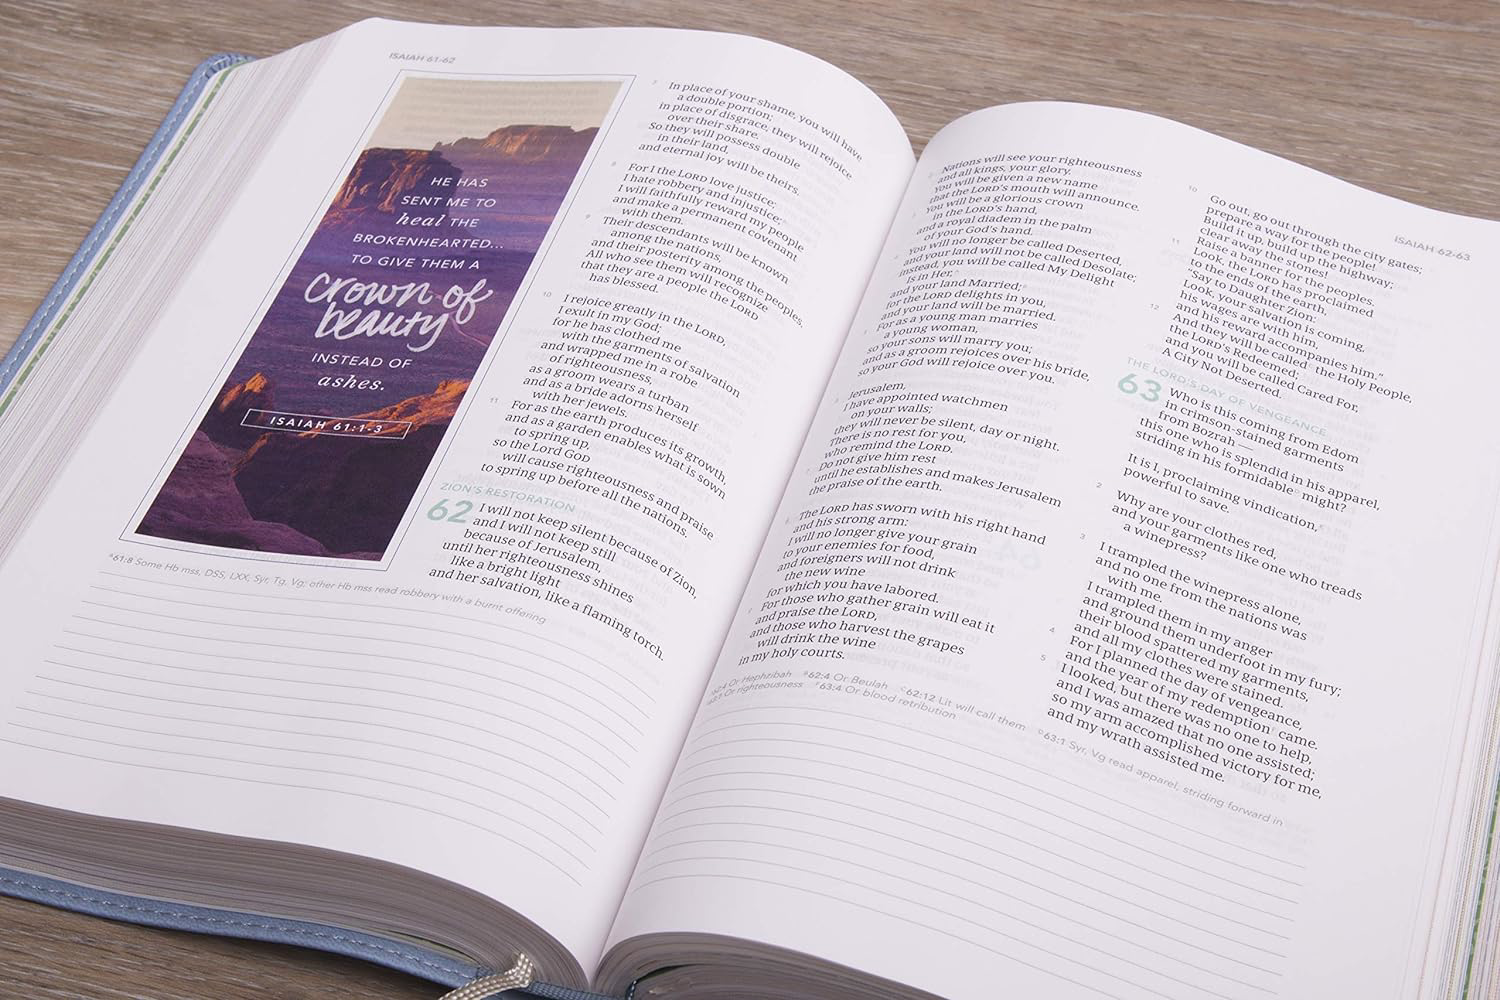 ISAIAH 61-62
HE HAS
SENT ME TO
heal THE
BROKENHEARTED...
TO GIVE THEM A
Crown of
beauty
INSTEAD OF
ashes.
ISAIAH 61:1-3
7 In place of your shame, you will have
a double portion;
in place of disgrace, they will rejoice
over their share.
So they will possess double
in their land,
and eternal joy will be theirs.
8 For I the LORD love justice;
I hate robbery and injustice;
I will faithfully reward my people
and make a permanent covenant
with them.
9 Their descendants will be known
among the nations,
and their posterity among the peoples.
All who see them will recognize
that they are a people the LORD
has blessed.
10 I rejoice greatly in the LORD,
I exult in my God;
for he has clothed me
with the garments of salvation
and wrapped me in a robe
of righteousness,
as a groom wears a turban
and as a bride adorns herself
with her jewels.
11 For as the earth produces its growth,
and as a garden enables what is sown
to spring up,
so the Lord GOD
will cause righteousness and praise
to spring up before all the nations.
ZION'S RESTORATION
62 I will not keep silent because of Zion,
and I will not keep still
because of Jerusalem,
until her righteousness shines
like a bright light
and her salvation, like a flaming torch.
61:8 Some Hb mss, DSS, LXX, Syr, Tg, Vg; other Hb mss read robbery with a burnt offering
2 Nations will see your righteousness
and all kings, your glory.
You will be given a new name
that the LORD's mouth will announce.
3 You will be a glorious crown
in the LORD's hand,
and a royal diadem in the palm
of your God's hand.
4 You will no longer be called Deserted,
and your land will not be called Desolate;
instead, you will be called My Delight
Is in Her,
and your land Married;
for the LORD delights in you,
and your land will be married.
5 For as a young man marries
a young woman,
so your sons will marry you;
and as a groom rejoices over his bride,
so your God will rejoice over you.
6 Jerusalem,
I have appointed watchmen
on your walls;
they will never be silent, day or night.
There is no rest for you,
who remind the LORD.
7 Do not give him rest
until he establishes and makes Jerusalem
the praise of the earth.
8 The LORD has sworn with his right hand
and his strong arm:
I will no longer give your grain
to your enemies for food,
and foreigners will not drink
the new wine
for which you have labored.
9 For those who gather grain will eat it
and praise the LORD,
and those who harvest the grapes
will drink the wine
in my holy courts.
62:4 Or Hephzibah 62:4 Or Beulah 62:12 Lit will call them 63:1 Syr, Vg read apparel, striding forward in
63:1 Or righteousness 63:4 Or blood retribution
ISAIAH 62-63
10 Go out, go out through the city gates;
prepare a way for the people!
Build it up, build up the highway;
clear away the stones!
Raise a banner for the peoples.
11 Look, the LORD has proclaimed
to the ends of the earth,
"Say to Daughter Zion:
Look, your salvation is coming,
his wages are with him,
and his reward accompanies him."
12 And they will be called the Holy People,
the LORD's Redeemed;
and you will be called Cared For,
A City Not Deserted.
THE LORD'S DAY OF VENGEANCE
63 Who is this coming from Edom
in crimson-stained garments
from Bozrah —
this one who is splendid in his apparel,
striding in his formidable might?
It is I, proclaiming vindication,
powerful to save.
2 Why are your clothes red,
and your garments like one who treads
a winepress?
3 I trampled the winepress alone,
and no one from the nations was
with me.
I trampled them in my anger
and ground them underfoot in my fury;
their blood spattered my garments,
and all my clothes were stained.
4 For I planned the day of vengeance,
and the year of my redemption came.
5 I looked, but there was no one to help,
and I was amazed that no one assisted;
so my arm accomplished victory for me,
and my wrath assisted me.